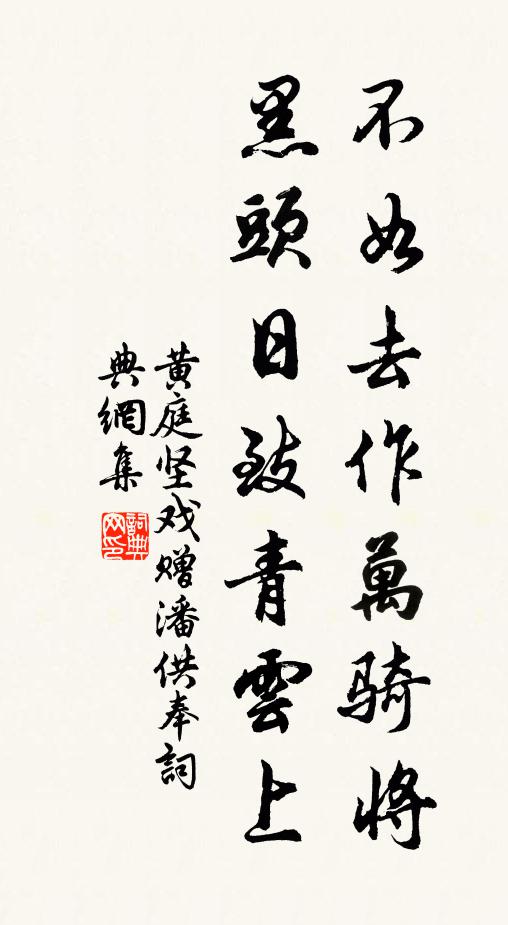 不如去作萬騎將
黑頭日致青雲上
黄庭坚戏赠潘供奉詞
典網集
詞典网印